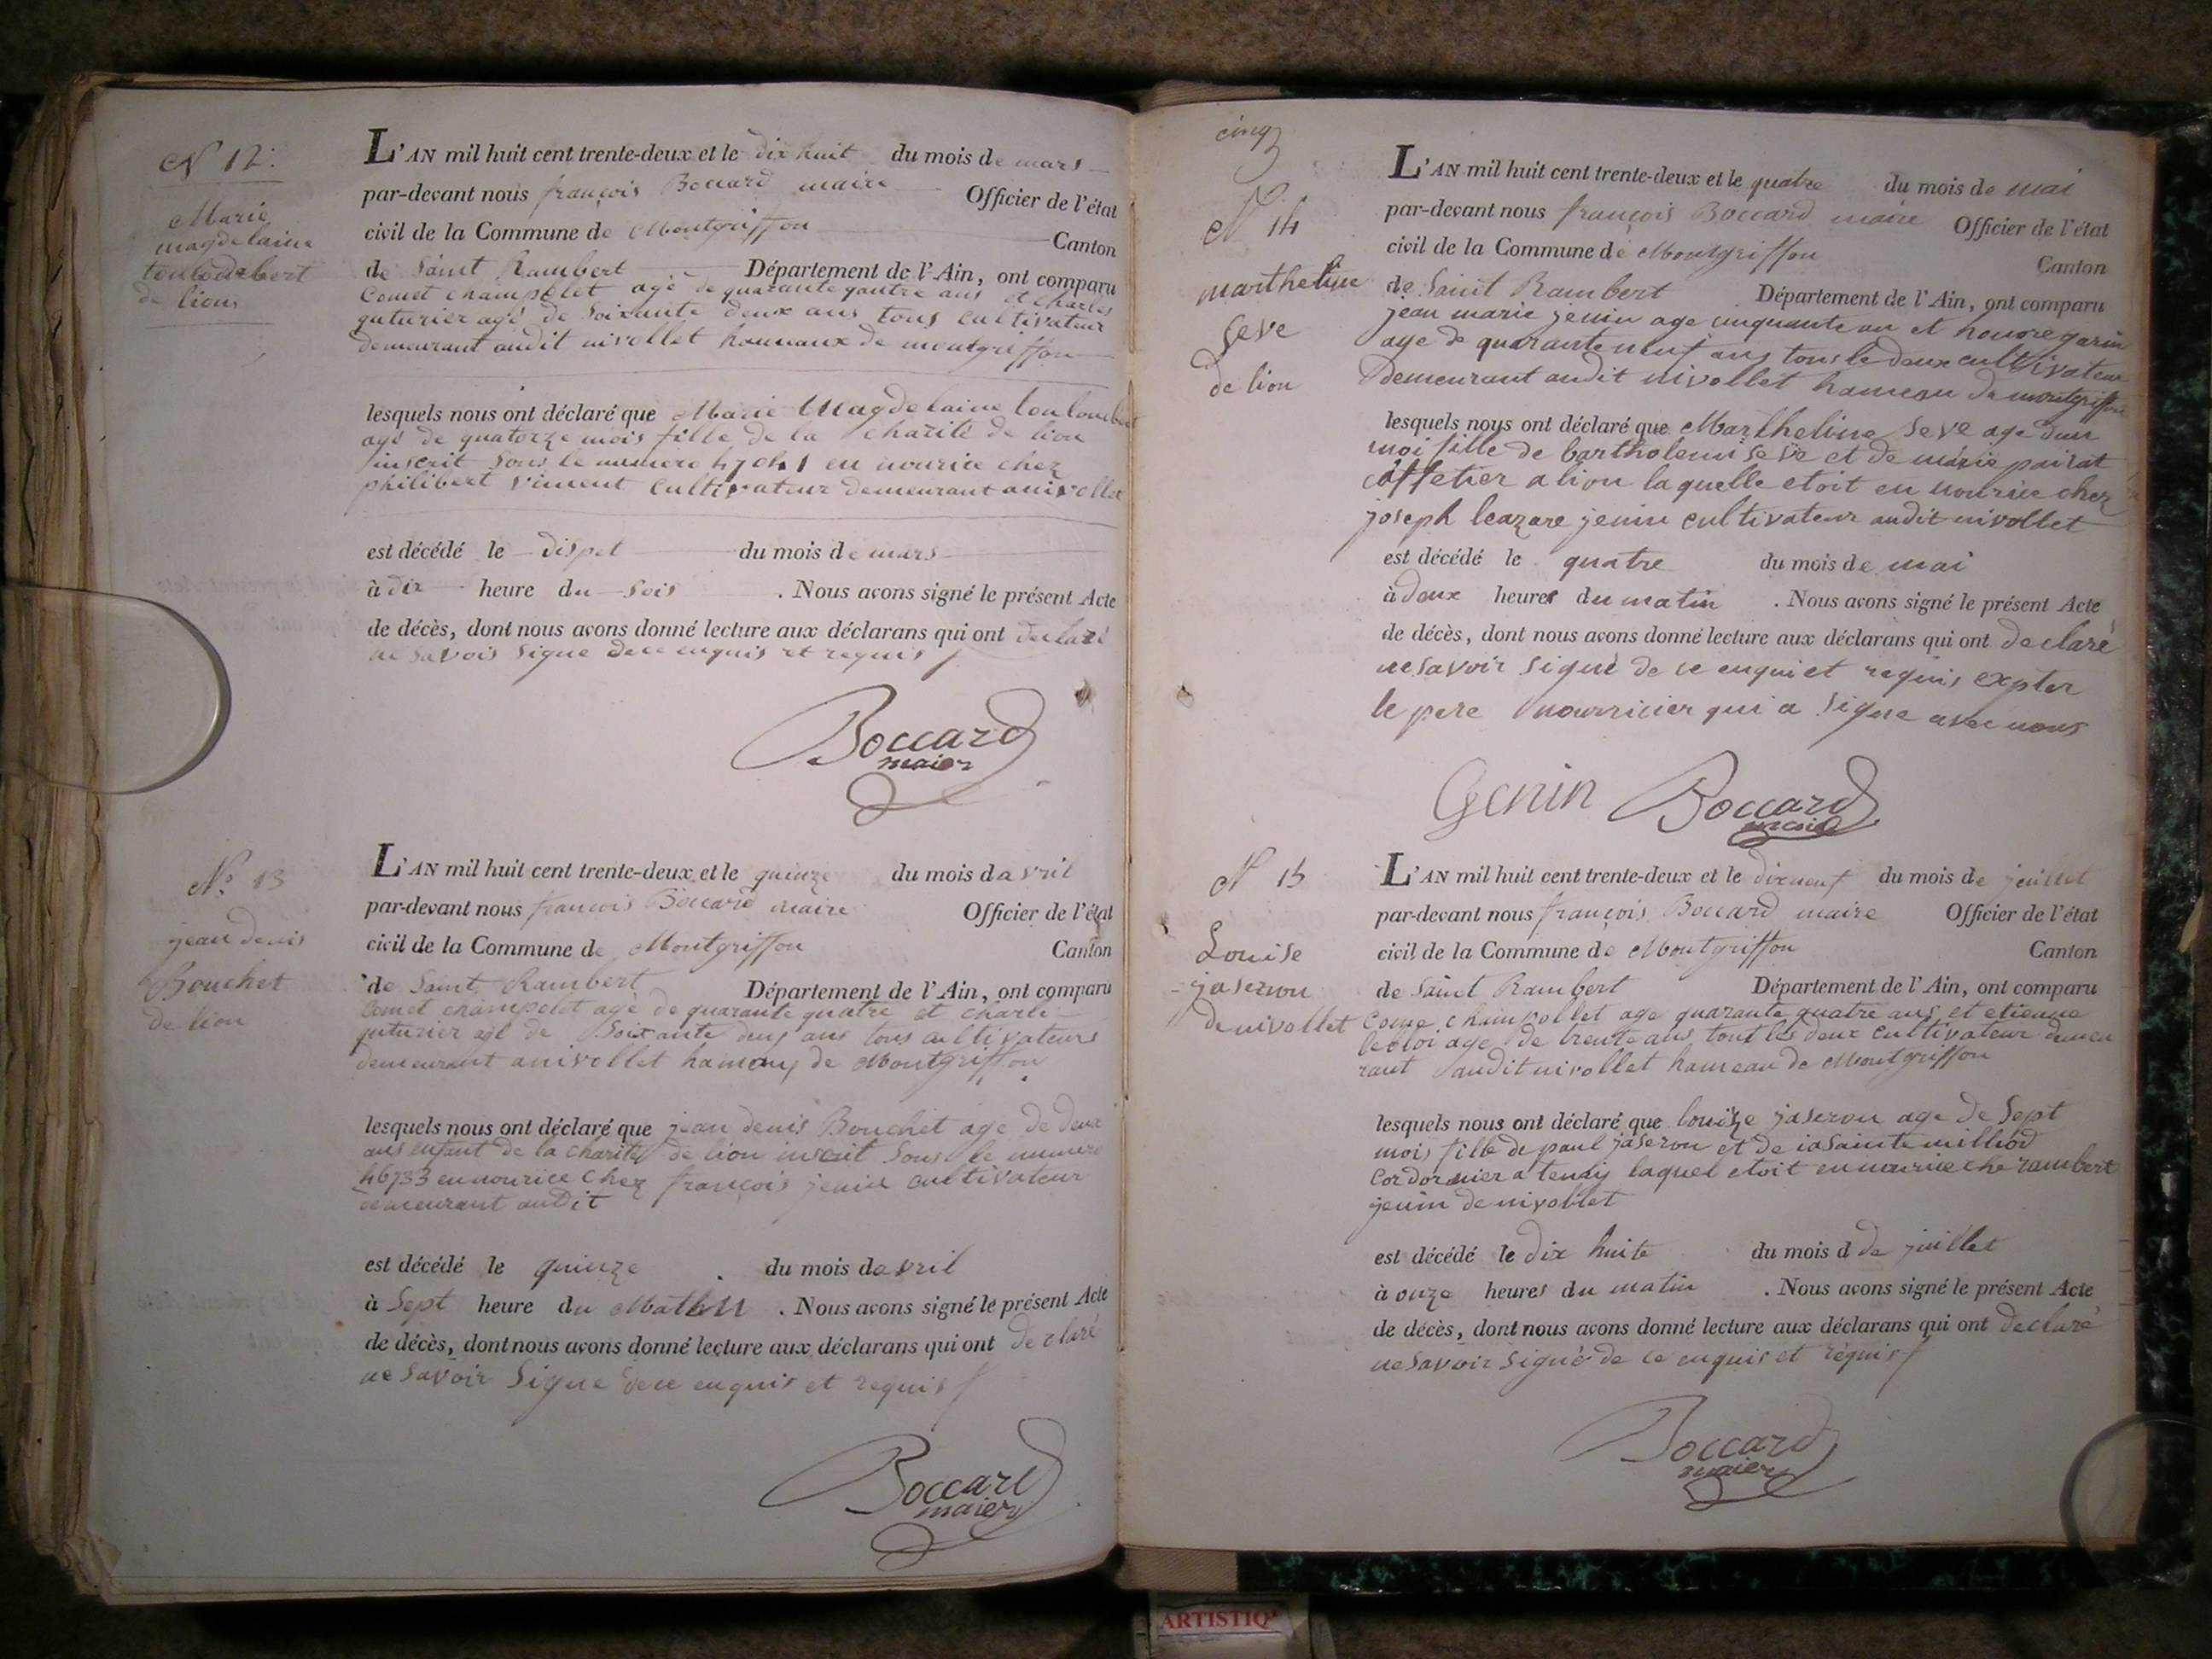 N 12.
Marie
magdelaine
touloudzbert
de lion
L'AN mil huit cent trente-deux et le dix huit du mois de mars
par-devant nous françois Boccard maire Officier de l'état
civil de la Commune de Montgriffon Canton
de Saint Rambert Département de l'Ain, ont comparu
Comet champelet agé de quarante qautre ans et charles
guturier agé de soixante deux ans tous cultivateur
demeurant audit nivollet hameaux de montgriffon
lesquels nous ont déclaré que Marie Magdelaine
agé de quatorze mois fille de la charité de lion
inscrit sous le numero en nourice chez
philibert vincent cultivateur demeurant anivollet
est décédé le dispet du mois de mars
à dix heure du soir . Nous avons signé le présent Acte
de décès, dont nous avons donné lecture aux déclarans qui ont declaré
ne savois signe dece enquis et requis
Boccard
maier
N.º 13
jean denis
Bouchet
de lion
L'AN mil huit cent trente-deux et le quinze du mois davril
par-devant nous francois Boccard maire Officier de l'état
civil de la Commune de Montgriffon Canton
de Saint Rambert Département de l'Ain, ont comparu
Comet champelet agé de quarante quatre et charle
guturier agé de Soixante deus ans tous cultivateurs
demeurant anivollet hamouy de Montgriffon
lesquels nous ont déclaré que jean denis Bouchet age de deux
ans enfant de la charité de lion inscrit sous le numero
46733 en nourice chez françois jenin cultivateur
demeurant audit
est décédé le quinze du mois davril
à Sept heure du Matin . Nous avons signé le présent Acte
de décès, dont nous avons donné lecture aux déclarans qui ont declaré
ne savoir signe dece enquis et requis
Boccard
maier
cinq
N 14
martheline
seve
de lion
L'AN mil huit cent trente-deux et le quatre du mois de mai
par-devant nous françois Boccard maire Officier de l'état
civil de la Commune de Montgriffon
Canton
de Saint Rambert Département de l'Ain, ont comparu
jean marie jenin age cinquante an et honore garin
age de quarante neuf ans tous le deux cultivateur
demeurant audit nivollet hameau de montgriffon
lesquels nous ont déclaré que Martheline seve age dun
moi fille de bartholemi seve et de marie pairat
caffetier a lion laquelle etoit en nourice chez
joseph leazare jenin cultivateur audit nivollet
est décédé le quatre du mois de mai
à deux heures du matin . Nous avons signé le présent Acte
de décès, dont nous avons donné lecture aux déclarans qui ont declaré
ne savoir signé de ce enqui et requis expter
le pere nourricier qui a signe avec nous
Genin Boccard
maire
N 15
Louise
jaseron
de nivollet
L'AN mil huit cent trente-deux et le dixneuf du mois de juillet
par-devant nous françois Boccard maire Officier de l'état
civil de la Commune de Montgriffon Canton
de Saint Rambert Département de l'Ain, ont comparu
Come champollet age quarante quatre ans et etienne
age de trente ans tout les deux cultivateur demeu
rant audit nivollet hameau de Montgriffon
lesquels nous ont déclaré que louise jaseron age de Sept
mois fille de paul jaseron et de milliod
Cordonnier a laquel etoit en nourice che rambert
jenin de nivollet
est décédé le dix huite du mois d de juillet
à onze heures du matin . Nous avons signé le présent Acte
de décès, dont nous avons donné lecture aux déclarans qui ont declaré
ne savoir signé de ce enquis et requis
Boccard
maier
ARTISTIQ